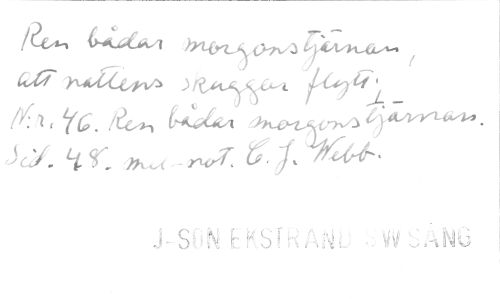 Ren bådar morgonstjärnan,
att nattens skuggar flytt;
N:r. 46. Ren bådar morgonstjärnan.
Sid. 48. mel-not. C. J. Webb.
J-SON EKSTRAND SW SÅNG